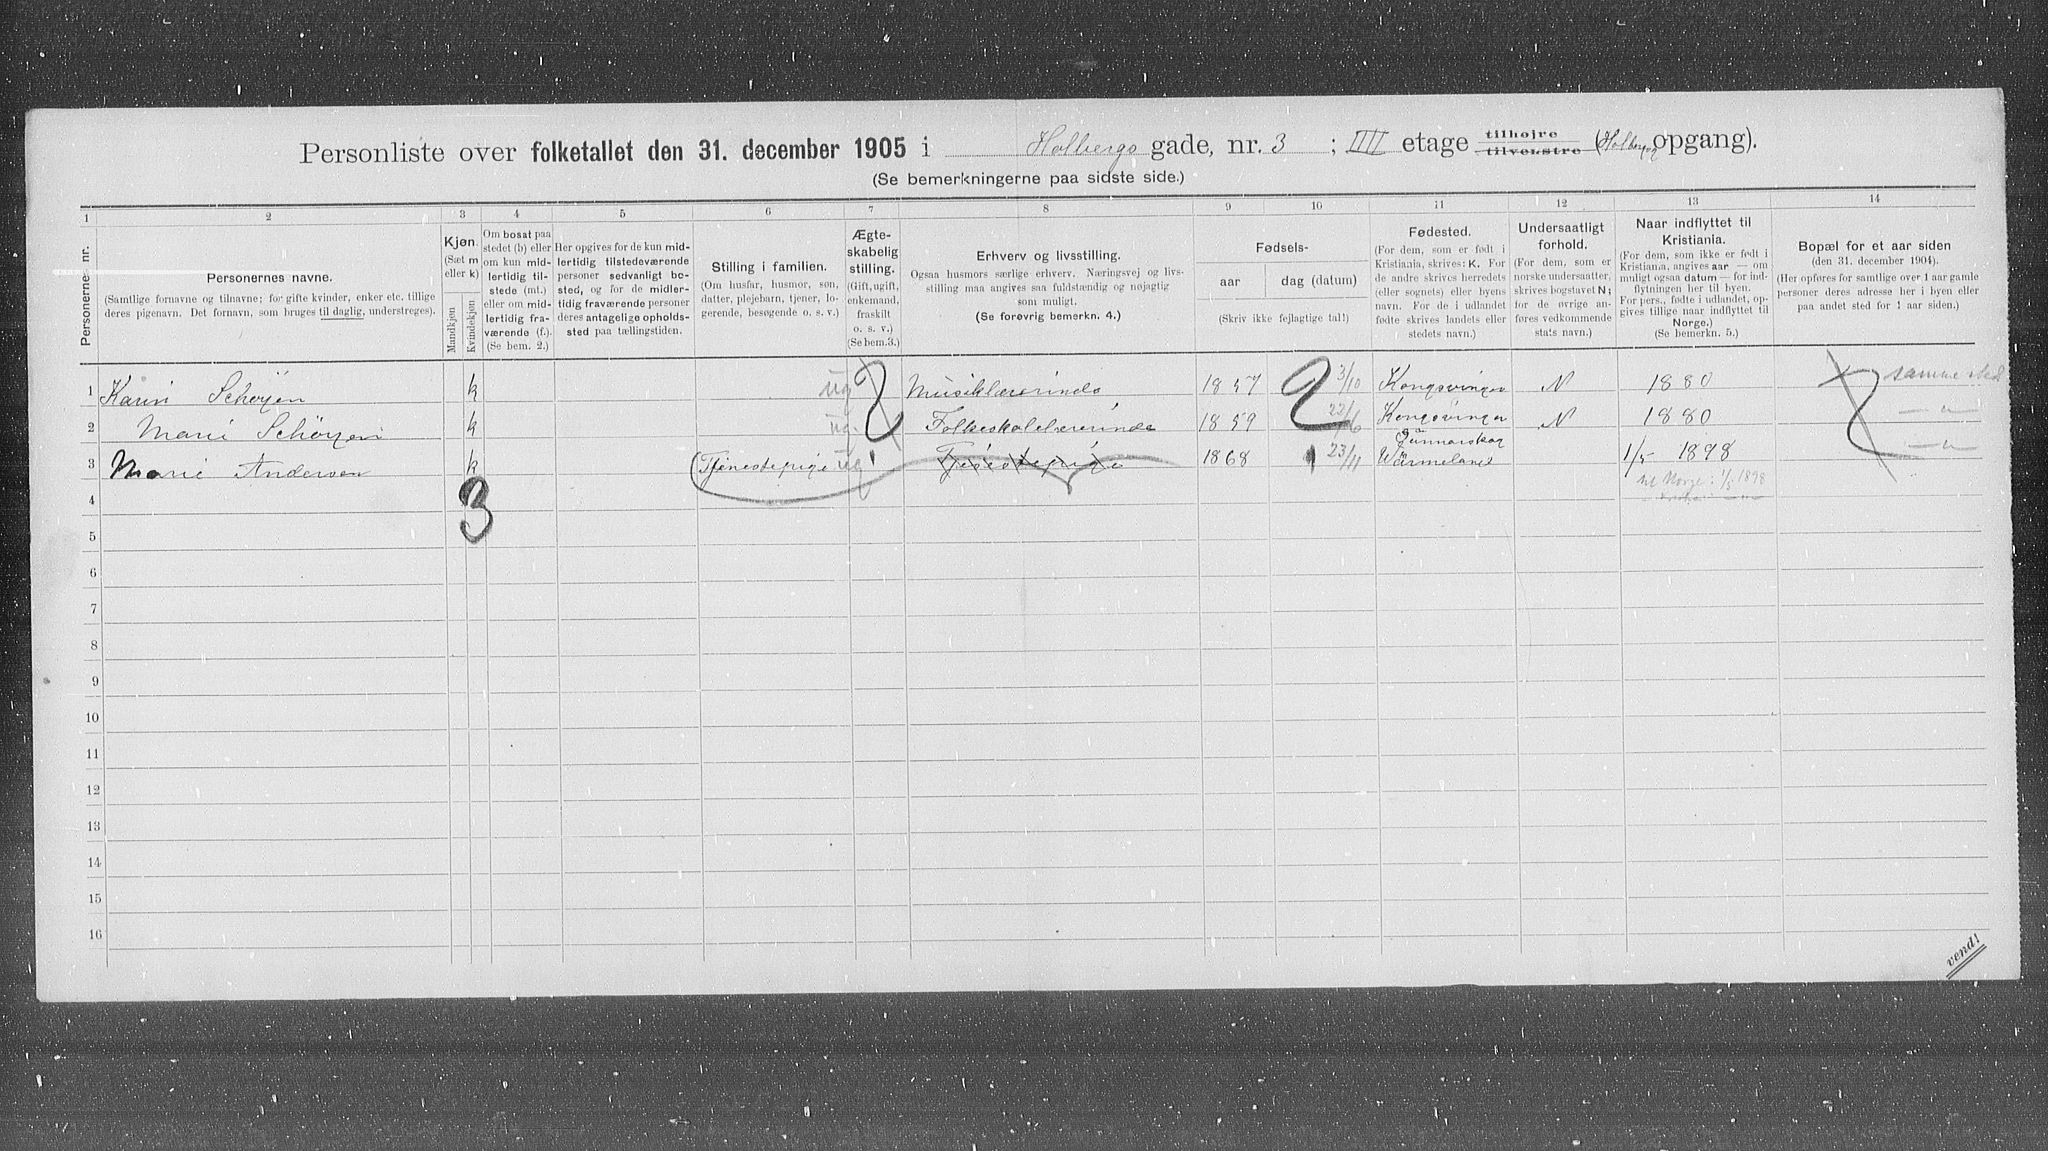 Personliste over folketallet den 31. december 1905 i Holbergs gade, nr. 3 ; IIII etage tilhøjre tilvenstre (Holbergg opgang).
(Se bemerkningerne paa sidste side.)
1 2 3 4 5 6 7 8 9 10 11 12 13 14
Personernes nr.
Personernes navne.
(Samtlige fornavne og tilnavne; for gifte kvinder, enker etc. tillige deres pigenavn. Det fornavn, som bruges til daglig, understreges).
Kjøn.
(Sæt m eller k)
Mandkjøn
Kvindekjøn
Om bosat paa stedet (b) eller om kun midlertidig tilstede (mt.) eller om midlertidig fraværende (f.). (Se bem. 2.)
Her opgives for de kun midlertidig tilstedeværende personer sedvanligt bosted, og for de midlertidig fraværende personer deres antagelige opholdssted paa tællingstiden.
Stilling i familien.
(Om husfar, husmor, søn, datter, plejebarn, tjener, logerende, besøgende o. s. v.)
Ægteskabelig stilling.
(Gift, ugift, enkemand, fraskilt o. s. v.)
(Se bem.3.)
Erhverv og livsstilling.
Ogsaa husmors særlige erhverv. Næringsvej og livsstilling maa angives saa fuldstændig og nøjagtig som muligt.
(Se forøvrig bemerkn. 4.)
Fødsels-
aar
dag (datum)
(Skriv ikke fejlagtige tal!)
Fødested.
(For dem, som er født i Kristiania, skrives: K. For de andre skrives herredets (eller sognets) eller byens navn. For de i udlandet fødte skrives landets eller stedets navn.)
Undersaatligt forhold.
(For dem, som er norske undersaatter, skrives bogstavet N; for de øvrige anføres vedkommende stats navn.)
Naar indflyttet til Kristiania.
(For dem, som ikke er født i Kristiania, angives aar — om muligt ogsaa datum — for indflytningen her til byen. For pers., fødte i udlandet, opgives tillige naar indflyttet til Norge.)
(Se bemerkn. 5.)
Bopæl for et aar siden
(den 31. december 1904).
(Her opføres for samtlige over 1 aar gamle personer deres adresse her i byen eller paa andet sted for 1 aar siden.)
1 Karin Schøyen k ug Musiklærerinde 1857 3/10 Kongsvinger N 1880 samme sted
2 Marie Schöyen k ug. Folkeskolelærerinde 1859 22/6 Kongsvinger N 1880 — " —
Gunnarskog
3 Marie Andersen k Tjenestepige ug Tjenestepige 1868 23/11 Wärmeland 1/5 1898 — " —
til Norge: 1/5 1898
2 2 2 1
3
4
5
6
7
8
9
10
11
12
13
14
15
16
vend!